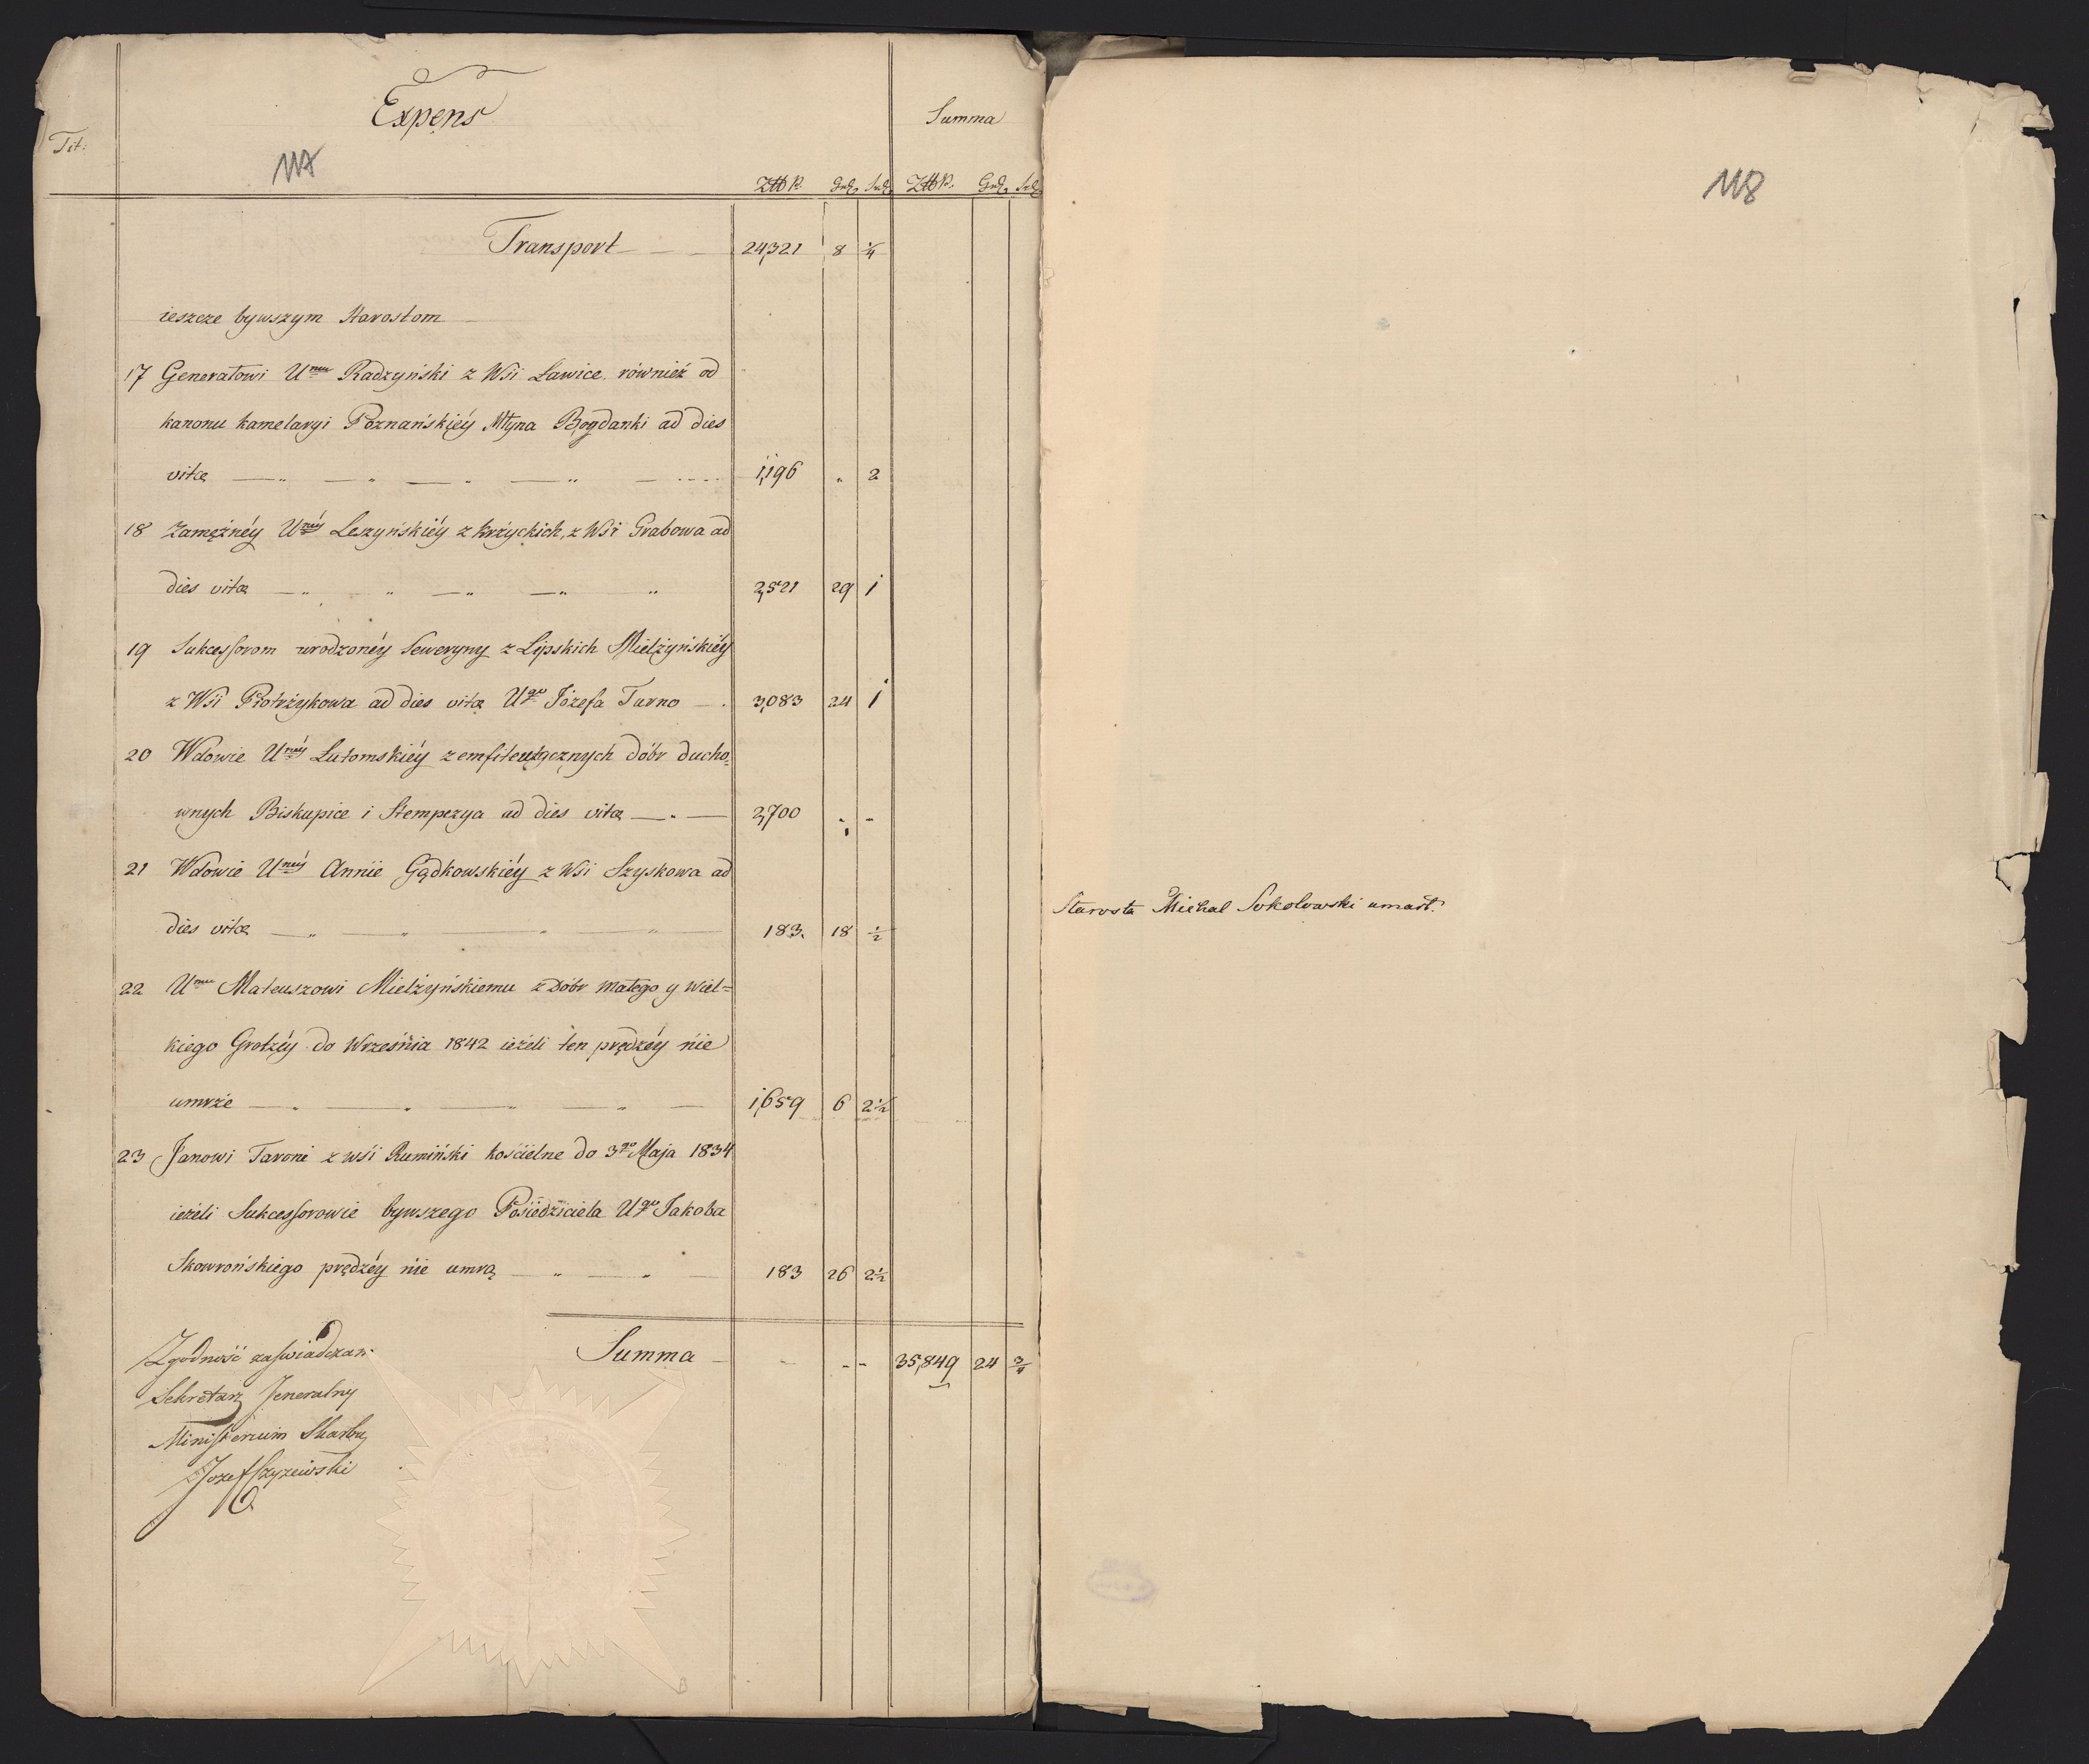 Expens
Summa
Tit:
117
Złł P. Gr. Sz. Złł P. Gr. Sz.
Transport 24,321 8 1/4
ieszcze bywszym Starostom
17 Generałowi U^mu Radzyński z Wsi Ławice również od
kanonu kamelaryi Poznańskiéy Młyna Bogdanki ad dies
vitæ 1,196 " 2
18 Zamężnéy U^néy Leszyńskiéy z Krzyckich, z Wsi Grabowa ad
dies vitæ 2,521 29 1
19 Sukcessorom urodzonéy Seweryny z Lipskich Mielżyńskiéy
z Wsi Piotrżykowa ad dies vitæ U^go Józefa Turno 3,083 24 1
20 Wdowie U^néy Lutomskiéy z emfiteutycznych dóbr ducho-
wnych Biskupice i Stempczya ad dies vitæ 2,700 " "
21 Wdowie U^néy Annie Gądkowskiéy z Wsi Szyskowa ad
dies vitæ 183. 18 1/2
22 U^mu Mateuszowi Mielżyńskiemu z Dóbr małego y wiel=
kiego Grotzéy do Września 1842 ieżeli ten prędzéy nie
umrze 1,659 6 2 1/2
23 Janowi Taroni z wsi Rumiński kościelne do 3^go Maja 1834
ieżeli Sukcessorowie bywszego Posiedziciela U^go Jakoba
Skowrońskiego prędzéy nie umrą 183 26 2 1/2
Summa 35,849 24 3/4
Zgodność zaświadczam
Sekretarz Jeneralny
Ministerium Skarbu
Jozef Czyżewski
118
Starosta Michal Sokolowski umarł.